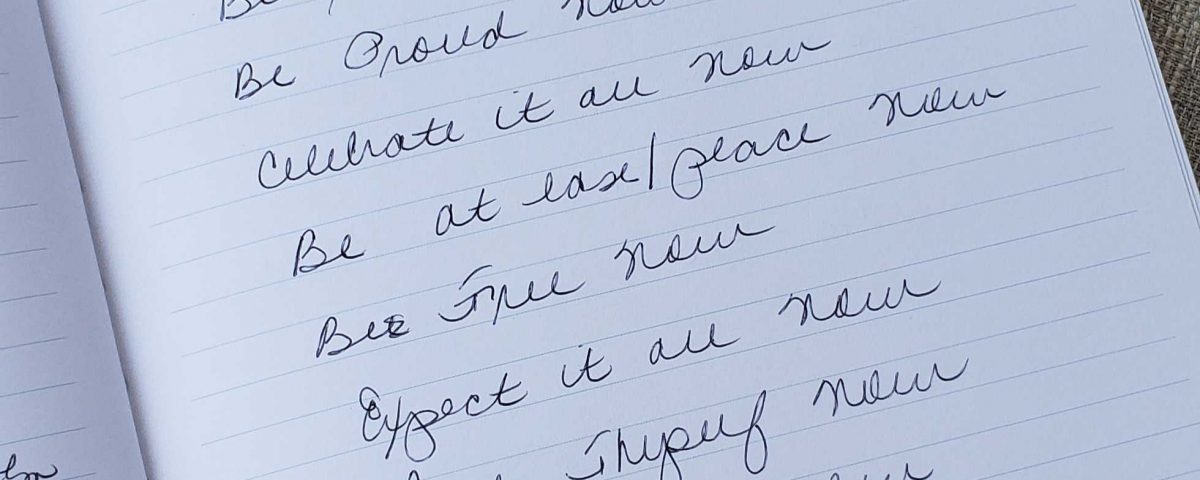 Be
Be Proud now
Celebrate it all now
Be at ease/peace now
Be Free now
Expect it all now
Thyself now